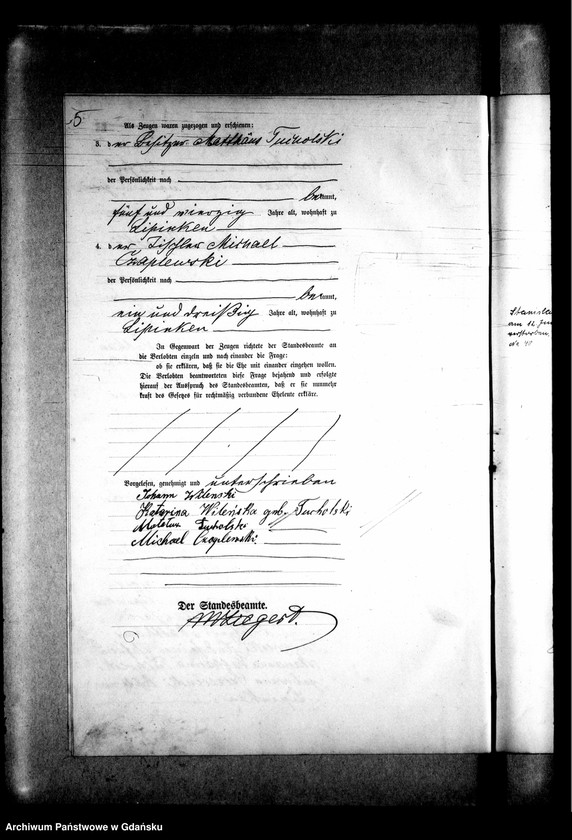 5.
Als Zeugen waren zugezogen und erschienen:
3. der Besitzer Matthäus Tucholski
der Persönlichkeit nach
bekannt,
fünf und vierzig Jahre alt, wohnhaft zu
Lipinken
4. der Tischler Michael
Czaplewski
der Persönlichkeit nach
bekannt,
ein und dreißig Jahre alt, wohnhaft zu
Lipinken
In Gegenwart der Zeugen richtete der Standesbeamte an
die Verlobten einzeln und nach einander die Frage:
ob sie erklären, daß sie die Ehe mit einander eingehen wollen.
Die Verlobten beantworteten diese Frage bejahend und erfolgte
hierauf der Ausspruch des Standesbeamten, daß er sie nunmehr
kraft des Gesetzes für rechtmäßig verbundene Eheleute erkläre.
Vorgelesen, genehmigt und unterschrieben
Johann Wilenski
Katarina Wileńska geb. Tucholski
Tucholski
Michael Czaplewski.
Der Standesbeamte.
am 12
verstorben
Archiwum Państwowe w Gdańsku